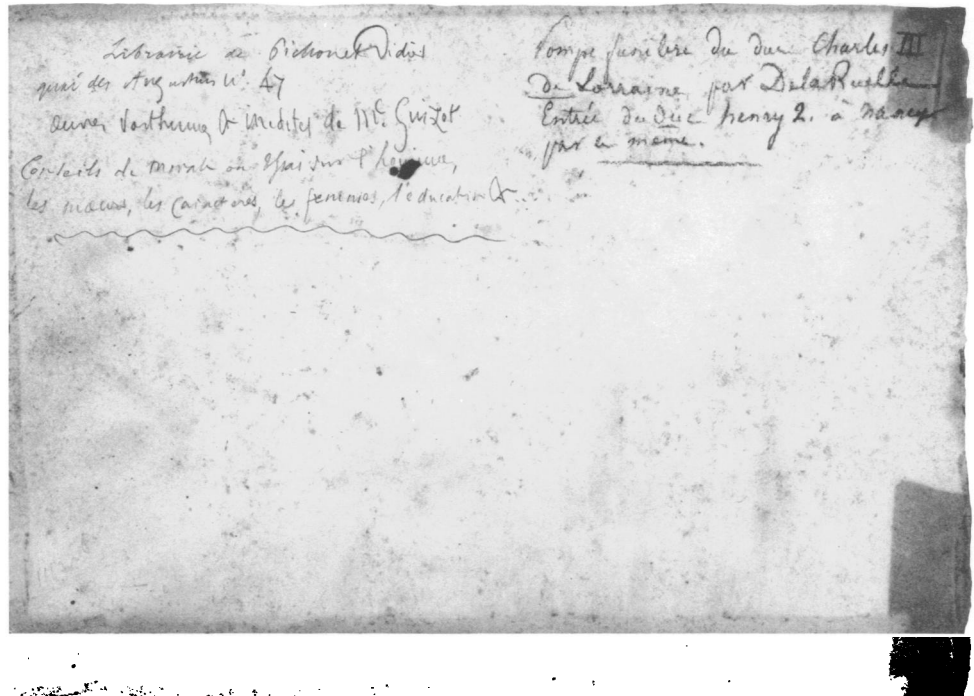 Librairie de Pichon et Didier
quai des Augustins N°. 47
œuvres posthumes & inédites de Me. Guizot
Conseils de morale ou Essais sur l'homme,
les mœurs, les caractères, les femmes, l'éducation &
Pompe funèbre du duc Charles III
de Lorraine, par De la Ruelle
Entrée du duc henry 2. à nancy
par le même.